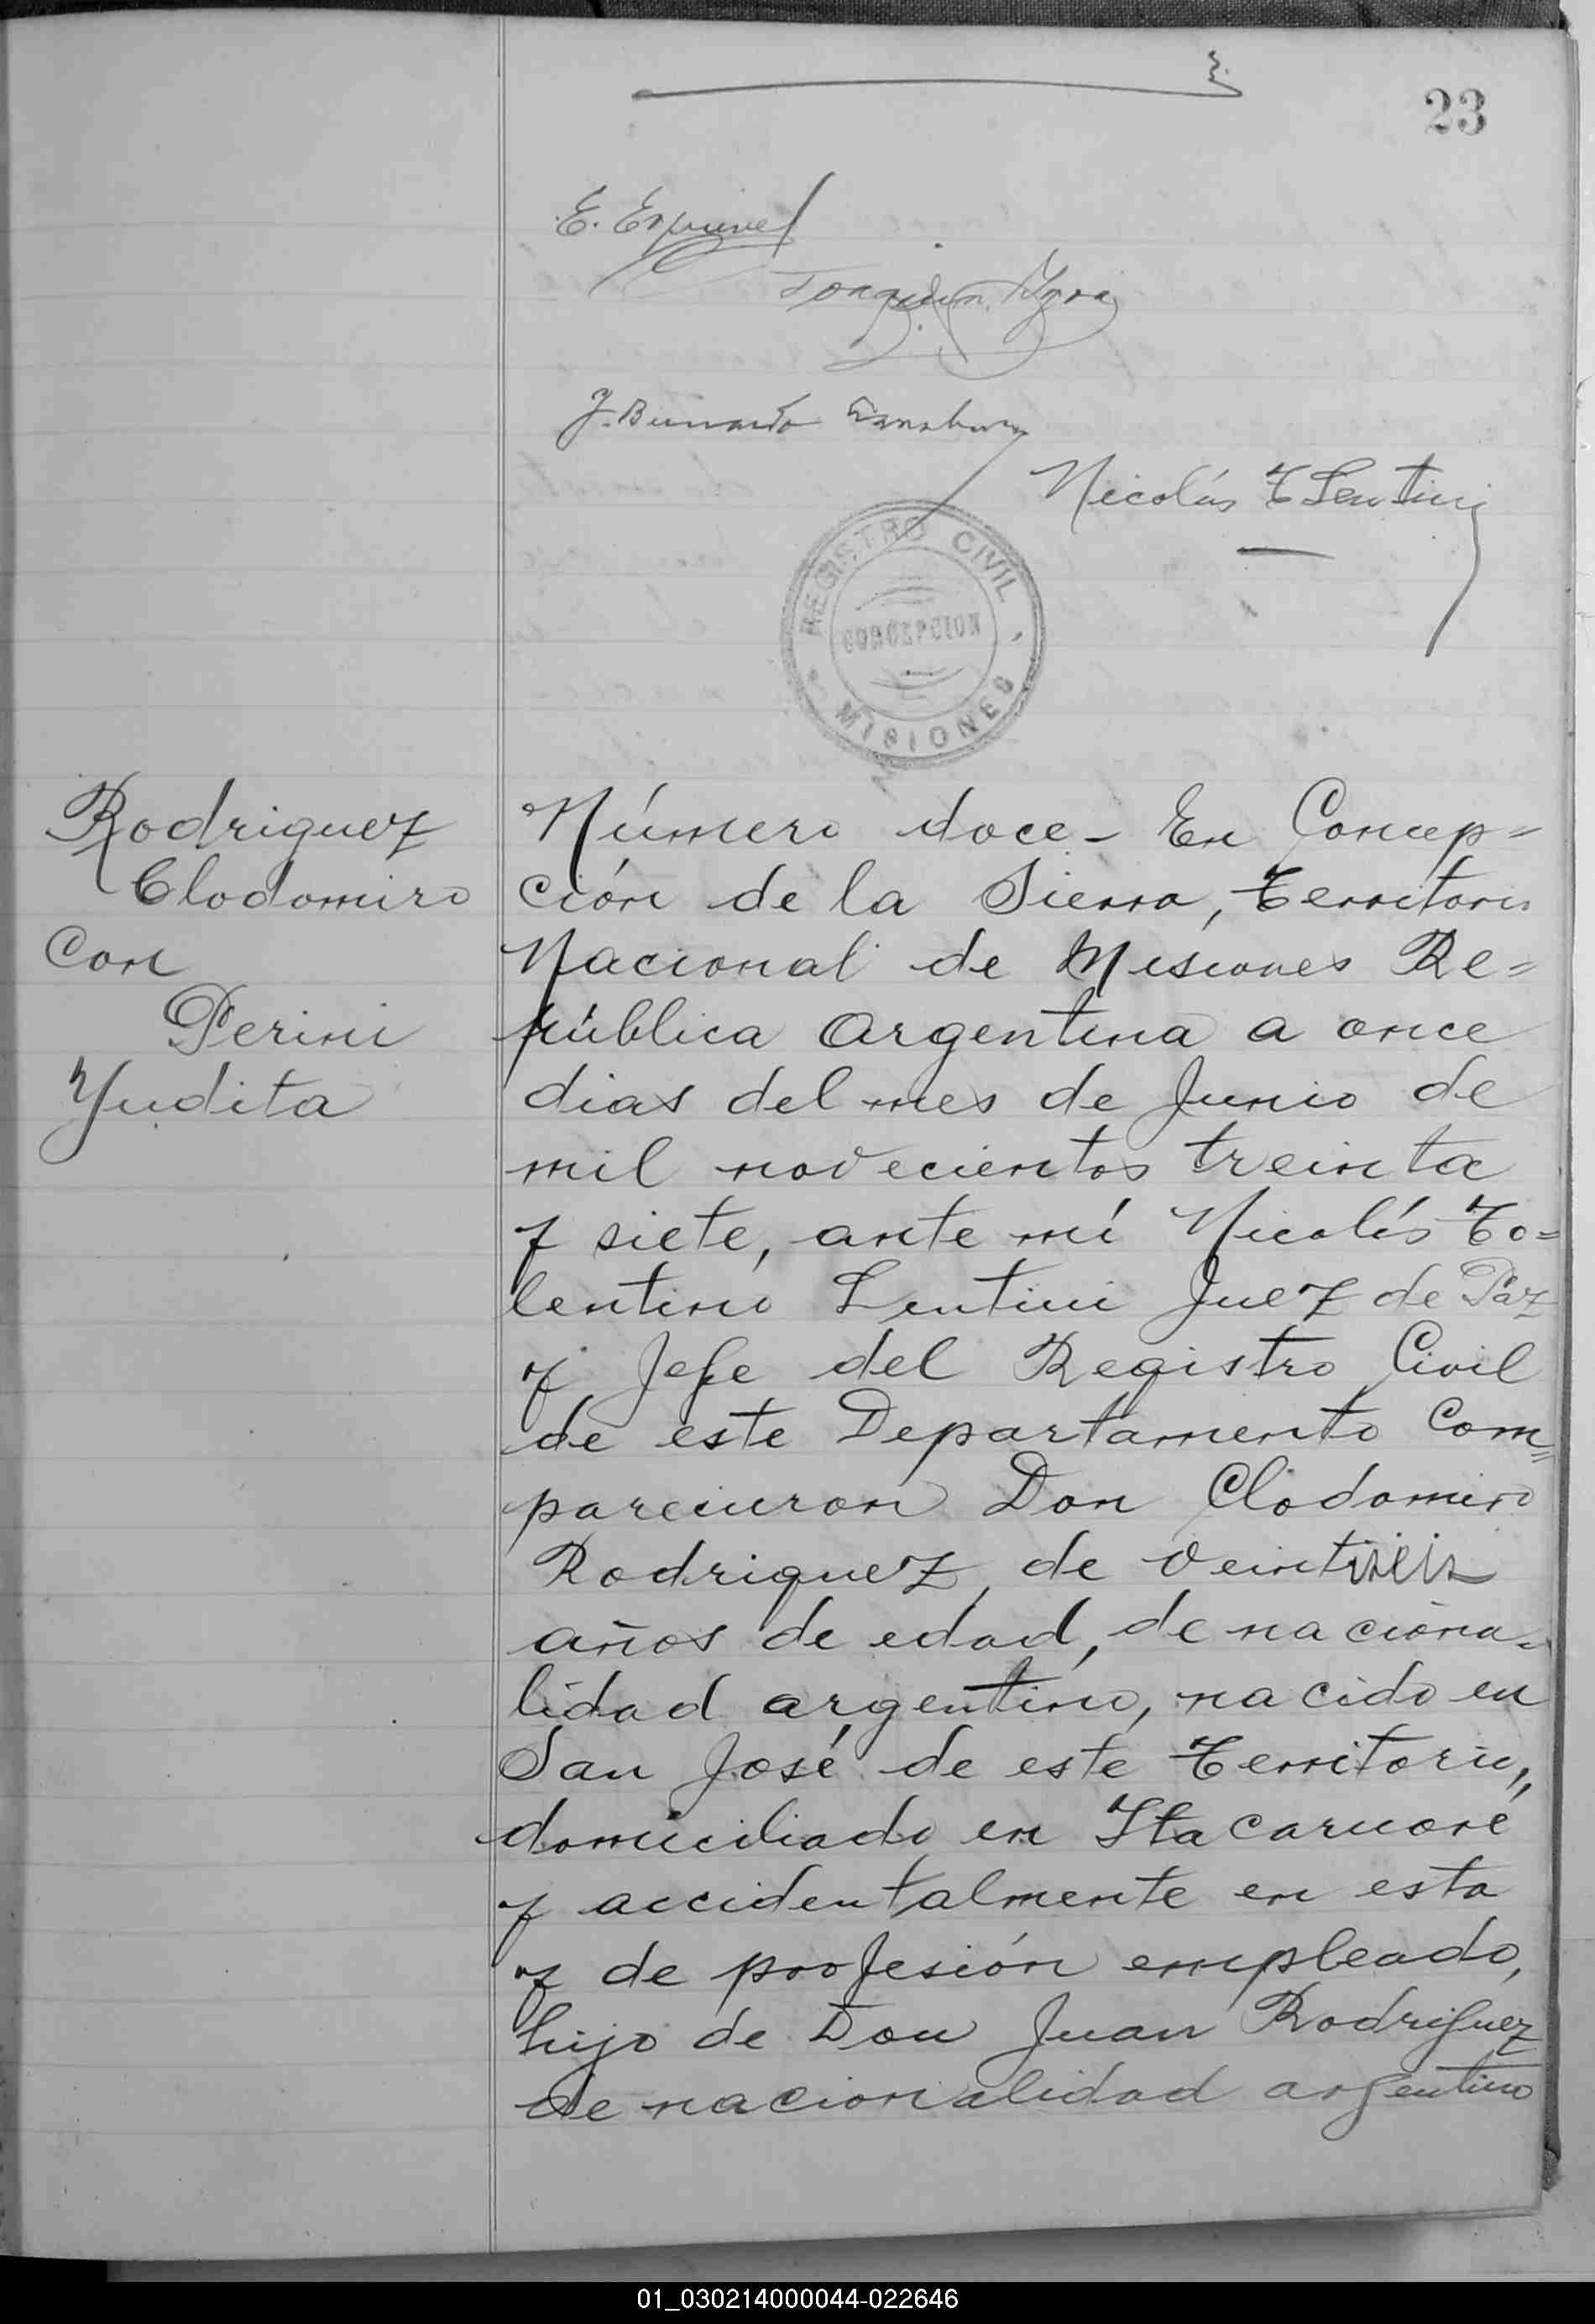 23
E. Espinel
Joaquin
J. Bernardo
Nicolás T Lentini
REGISTRO CIVIL
CONCEPCION
MISIONES
Rodriguez
Clodomiro
Con
Perini
Yudita
Número doce - En Concep=
ción de la Sierra, Territorio
Nacional de Misiones Re=
pública Argentina a once
dias del mes de Junio de
mil novecientos treinta
y siete, ante mí Nicolás To=
lentino Lentini Juez de Paz
y Jefe del Registro Civil
de este Departamento Com=
parecieron Don Clodomiro
Rodriguez, de veintiseis
años de edad, de naciona=
lidad argentino, nacido en
San José de este Territorio,
domiciliado en Itacaruaré
y accidentalmente en esta
y de profesión empleado,
hijo de Don Juan Rodriguez
de nacionalidad argentino
01_030214000044-022646